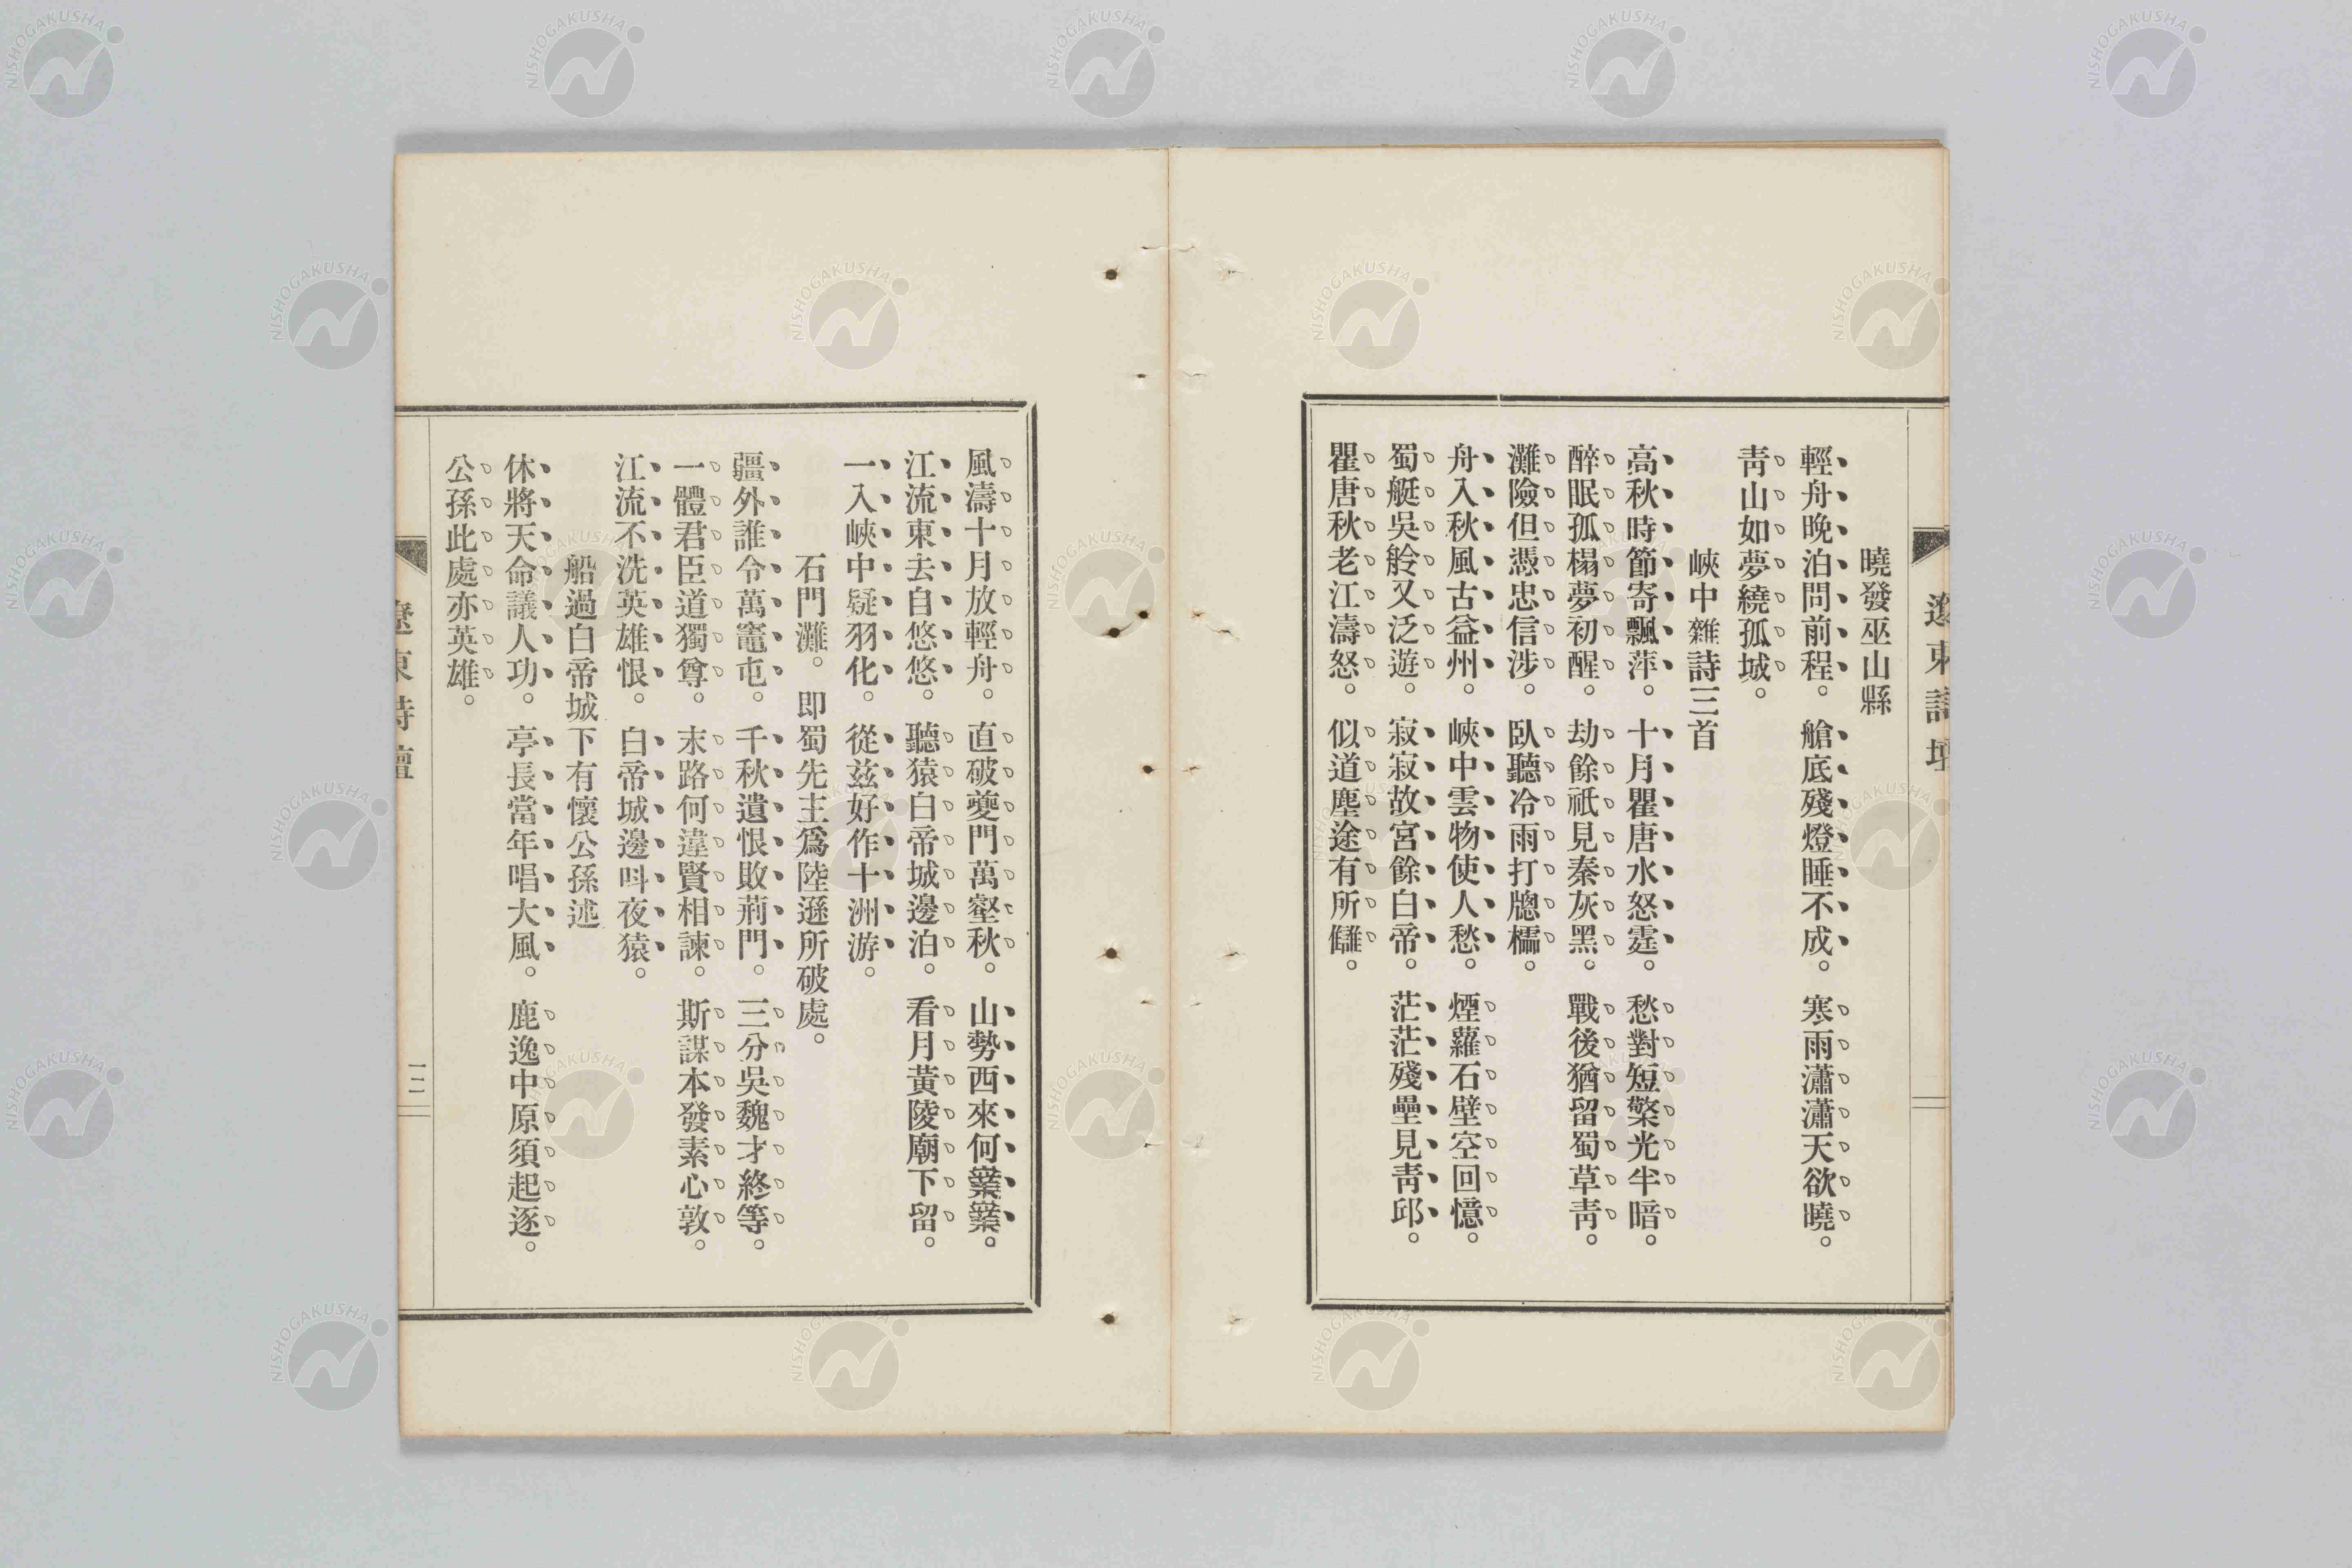 曉發巫山縣
輕舟晚泊問前程。艙底殘燈睡不成。寒雨瀟瀟天欲曉。
靑山如夢繞孤城。
峽中雜詩三首
高秋時節寄飄萍。十月瞿唐水怒霆。愁對短檠光半暗。
醉眠孤榻夢初醒。劫餘祇見秦灰黑。戰後猶留蜀草靑。
灘險但憑忠信涉。臥聽冷雨打牕櫺。
舟入秋風古益州。峽中雲物使人愁。煙蘿石壁空回憶。
蜀艇吳舲又泛遊。寂寂故宮餘白帝。茫茫殘壘見靑邱。
瞿唐秋老江濤怒。似道塵途有所讎。
遼東詩壇
風濤十月放輕舟。直破夔門萬壑秋。山勢西來何業業。
江流東去自悠悠。聽猿白帝城邊泊。看月黃陵廟下留。
一入峽中疑羽化。從茲好作十洲游。
石門灘。卽蜀先主爲陸遜所破處。
疆外誰令萬竈屯。千秋遺恨敗荊門。三分吳魏才終等。
一體君臣道獨尊。末路何違賢相諫。斯謀本發素心敦。
江流不洗英雄恨。白帝城邊叫夜猿。
船過白帝城下有懷公孫述
休將天命議人功。亭長當年唱大風。鹿逸中原須起逐。
公孫此處亦英雄。
遼東詩壇
一二
NISHOGAKUSHA